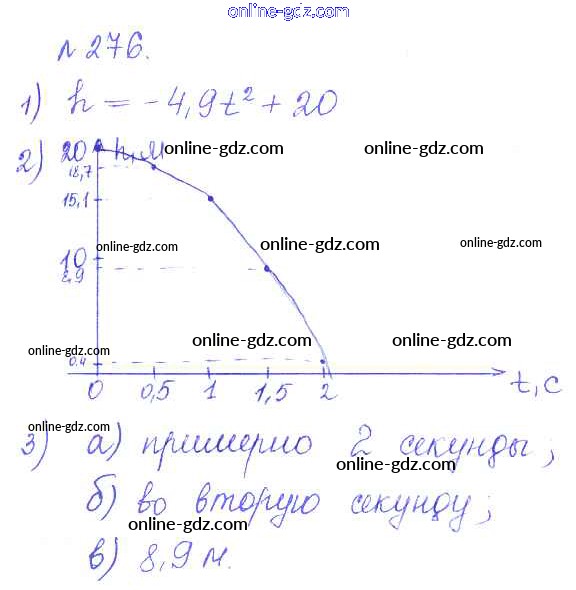 online-gdz.com
№ 276.
1) h = -4,9t² + 20
2) 20 h, м online-gdz.com online-gdz.com
18,7
15,1
online-gdz.com online-gdz.com online-gdz.com
10
8,9
online-gdz.com online-gdz.com online-gdz.com
0,4
0 0,5 1 1,5 2 t, c
online-gdz.com
3) а) примерно 2 секунды;
online-gdz.com
б) во вторую секунду;
online-gdz.com
в) 8,9 м.